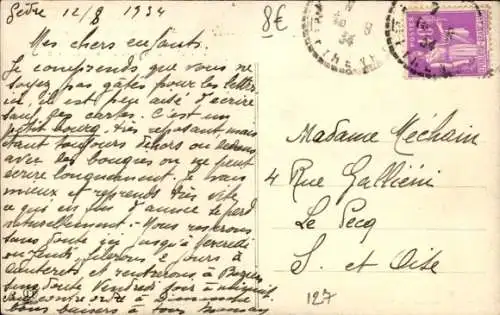 Gèdre 12/8 1934
8€
Mes chers enfants.
Je comprends que vous ne
soyez pas gâtés pour les lettres
ici, il est peu aisé d'écrire
sauf des cartes. C'est un
petit bourg, très reposant, mais
étant toujours dehors ou dedans
avec les on ne peut
écrire longuement. Je vais
mieux et reprends très vite
ce qui en fin d'année se perd
naturellement. Nous resterons
sans doute ici jusqu'à Vendredi
2 jours à
Cauterets et rentrerons à
sans doute Vendredi soir
contre ordre à Dimanche
Bons baisers à tous Maman
Madame Méchain
4 Rue Galliéni
Le Pecq
S. et Oise
127